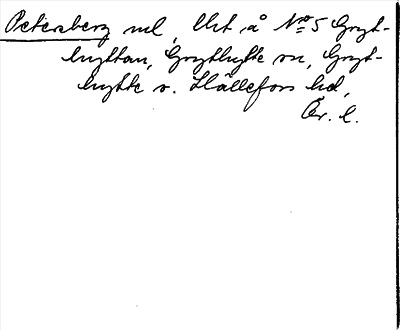 Petersberg ml, Urt å Nro 5 Gryt-
hyttan, Grythytte sn, Gryt-
hytte o. Hällefors hd,
Ör. l.